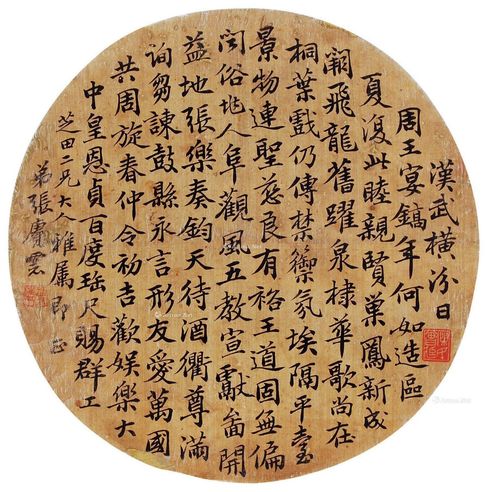 漢武橫汾日
周王宴鎬年何如造區
夏復此睦親賢巢鳳新成
闕飛龍舊躍泉棣華歌尚在
桐葉戲仍傳禁籞氛埃隔平臺
景物連聖慈良有裕王道固無偏
問俗地人阜觀風五教宣獻畣開
益地張樂奏鈞天待酒衢尊滿
詢芻諫鼓縣永言形友愛萬國
共周旋春仲令初吉歡娛樂大
中皇恩貞百度珤尺賜群工
芝田二兄大人雅屬即正
弟張賡